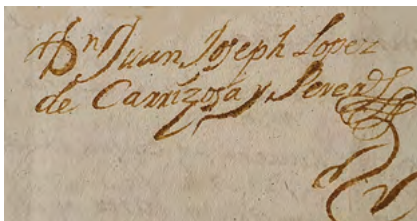 Dn Juan Joseph Lopez
de Carrizosa y Perea